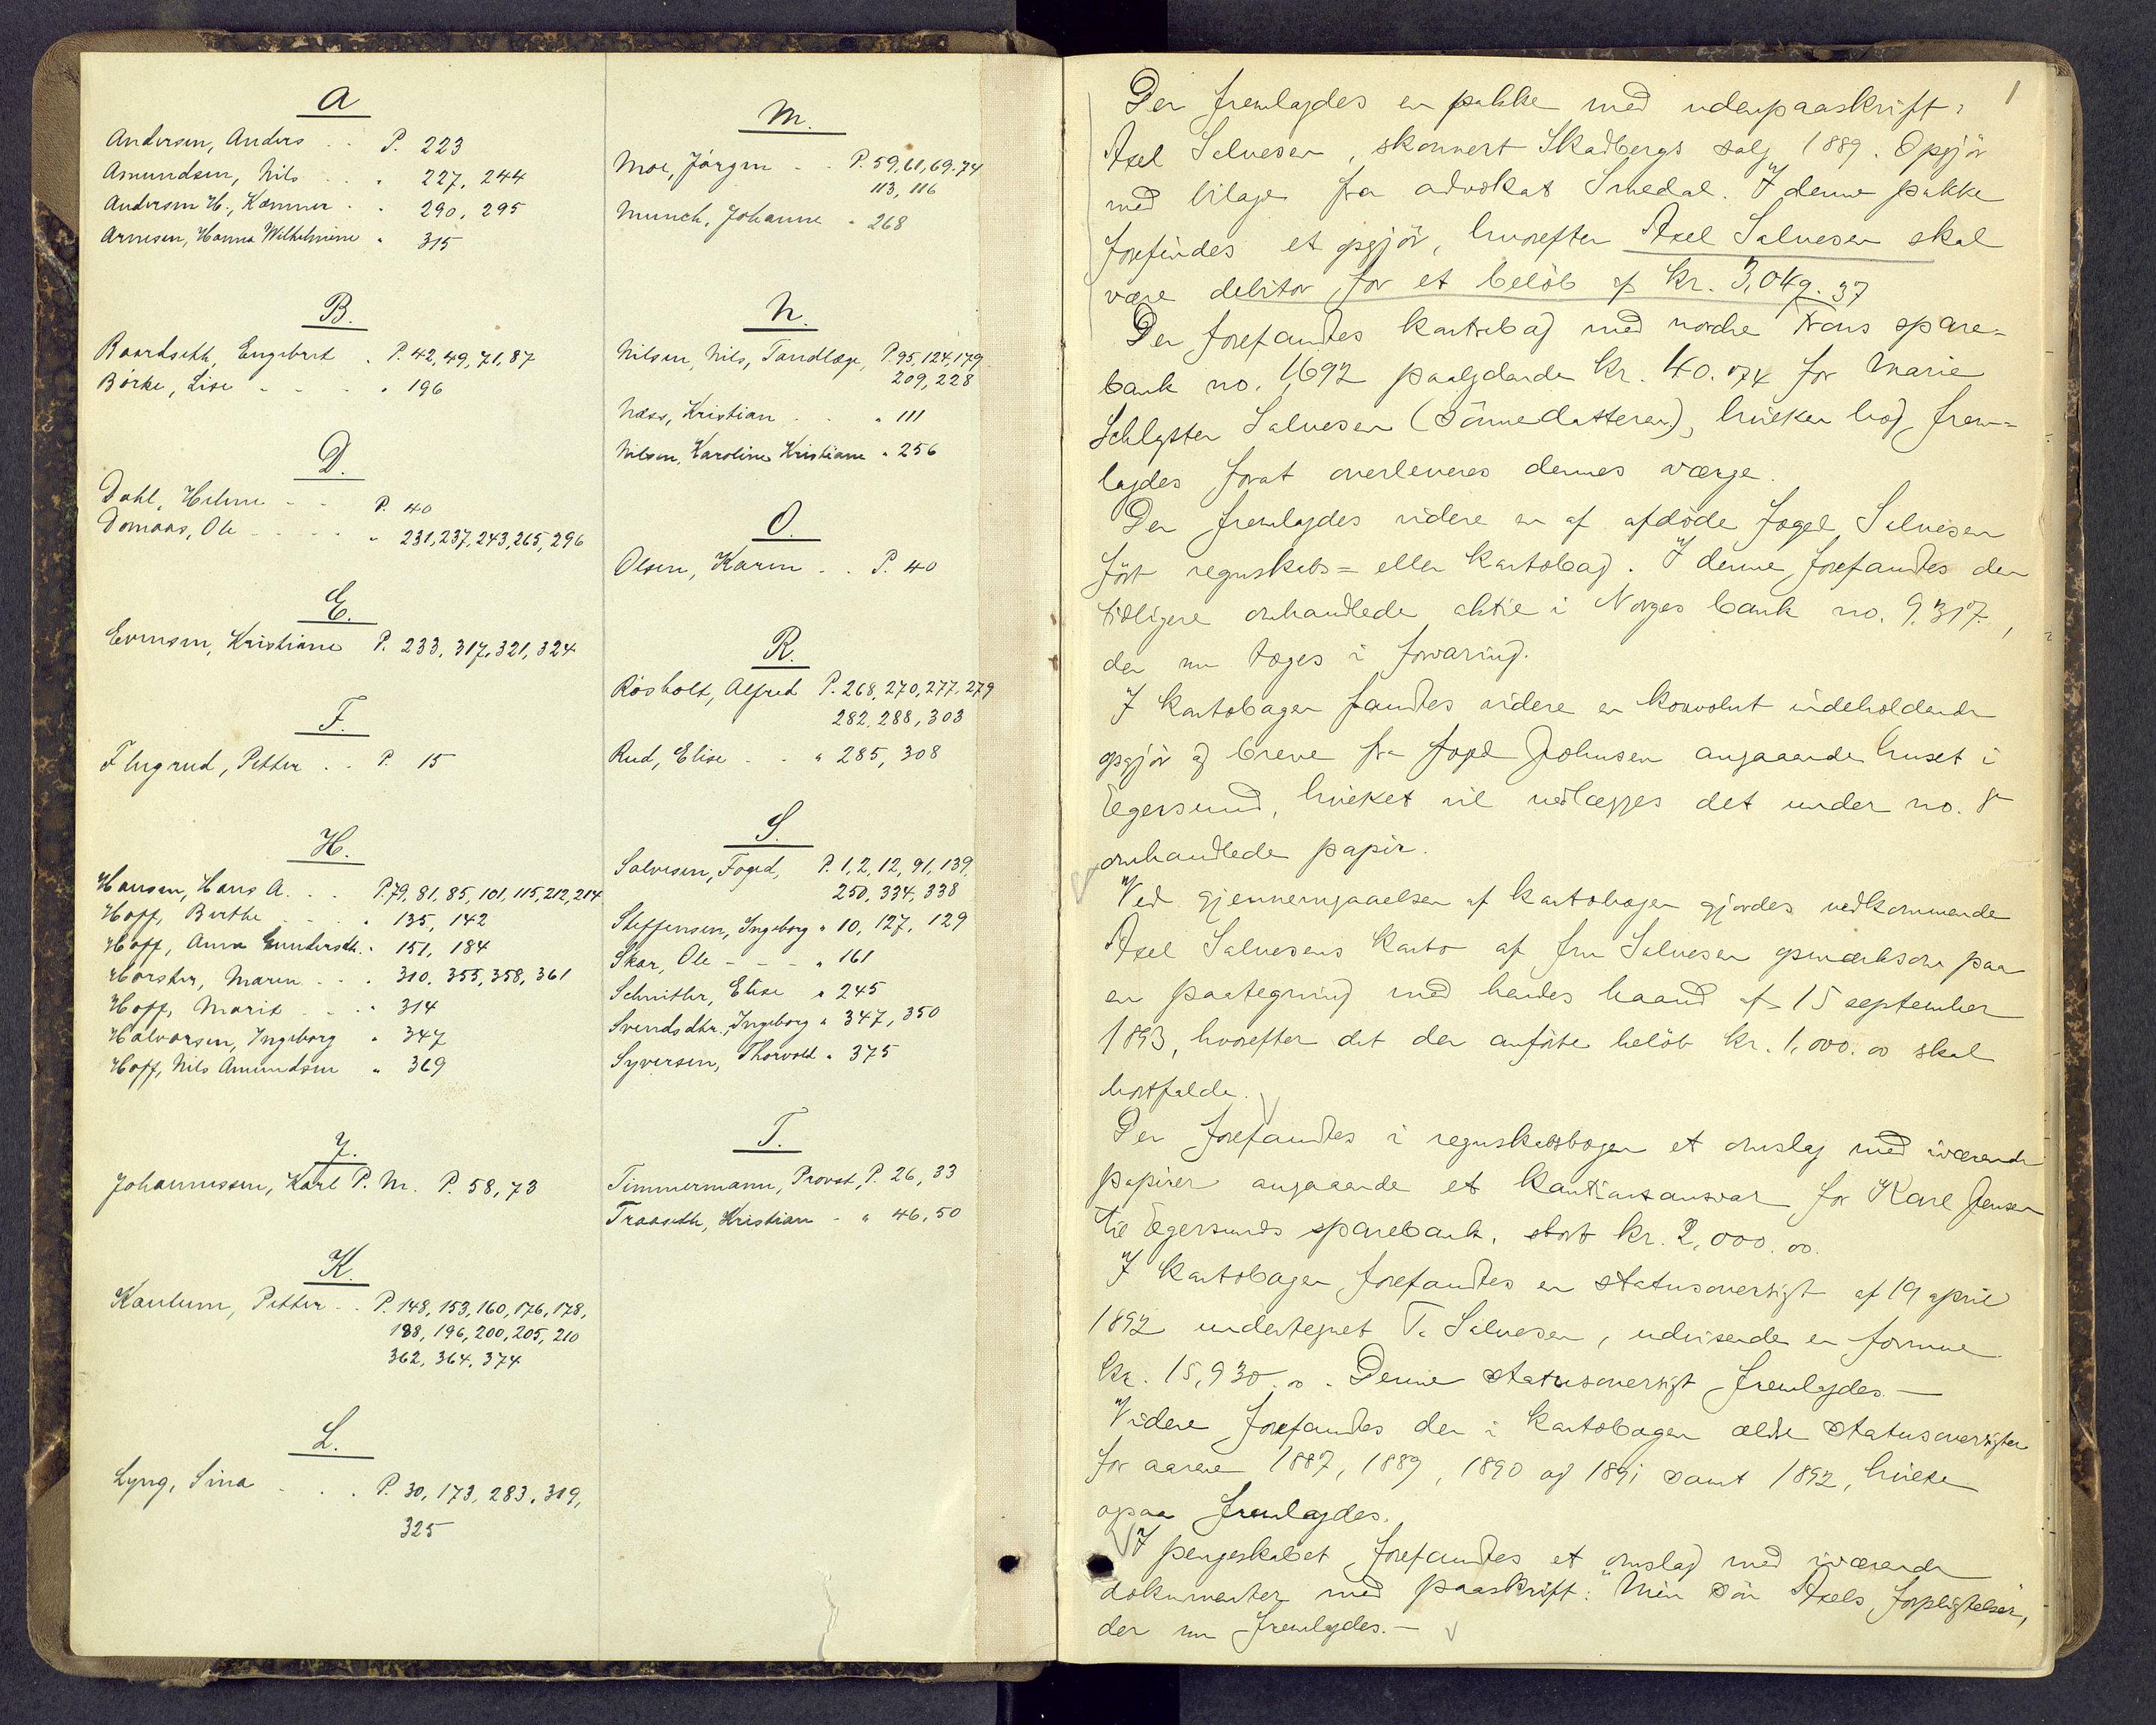 A
Andersen, Anders . . P. 223
Amundsen, Nils . . " 227, 244
Andersen H., Kæmner . " 290, 295
Arnesen, Hanna Wilhelmine " 315
B.
Baardseth, Engebret . P. 42, 49, 71, 87
Börke, Lise - - - " 196
D.
Dahl, Helene - - P. 40
Domaas, Ole - - - - " 231, 237, 243, 265, 296
E.
Evensen, Kristiane P. 233, 317, 321, 324
F.
Flugrud, Petter . . P. 15
H.
Hansen, Hans A. . . P. 79, 81, 85, 101, 115, 212, 214
Hoff, Berthe . . . " 135, 142
Hoff, Anna Gundersdt. " 151, 184
Horster, Maren . . . 310, 355, 358, 361
Hoff, Marit . . . " 314
Halvorsen, Ingeborg " 347
Hoff, Nils Amundsen " 369
J.
Johannessen, Karl P. M. P. 58, 73
K.
Kaulum, Petter . . P. 148, 153, 160, 176, 178,
188, 196, 200, 205, 210
362, 364, 374
L.
Lyng, Sina . . . P. 30, 173, 283, 319,
325
M.
Moe, Jörgen . . P. 59, 61, 69, 74
113, 116
Munch, Johanne " 268
N.
Nilsen, Nils, Tandlæge, P. 95, 124, 179
209, 228
Næss, Kristian . . " 111
Nilsen, Karoline Kristiane " 256
O.
Olsen, Karen . . P. 40
R.
Rösholt, Alfred P. 268, 270, 277, 279
282, 288, 303
Rud, Elise . . " 285, 308
S.
Salvesen, Foged, P. 1, 2, 12, 91, 139,
250, 334, 338
Steffensen, Ingeborg " 10, 127, 129
Skar, Ole - - - " 161
Schnitler, Elise " 245
Svendsdtr., Ingeborg " 347, 350
Syversen, Thorvald " 375
T.
Timmermann, Provst, P. 26, 33
Traaseth, Kristian - " 46, 50
1
Der fremlagdes en pakke med udenpaaskrift:
Axel Salvesen, skonnert Skadbergs salg 1889. Opgjör
med bilage fra advokat Smedal. I denne pakke
forefindes et opgjör, hvorefter Axel Salvesen skal
være debitor for et belöb af kr. 3,049.37
Der forefandtes kontrabog med nordre Trons spare-
bank no. 1692 paalydende kr. 40.074 for Marie
Schlytter Salvesen (Sönnedatteren), hvilken bog frem-
lagdes forat overleveres dennes værge.
Der fremlagdes videre en af afdöde foged Salvesen
fört regnskabs- eller kontobog. I denne forefandtes den
tidligere omhandlede aktie i Norges bank no. 9.317.,
der nu toges i forvaring.
I kontobogen fandtes videre en konvolut indeholdende
opgjör og breve fra foged Johnsen angaaende huset i
Egersund, hvilket vil vedlægges det under no. 8
omhandlede papir.
Ved gjennemgaaelsen af kontobogen gjordes vedkommende
Axel Salvesens konto af fru Salvesen opmærksom paa
en paategning med hendes haand af 15 september
1893, hvorefter det der anförte belöb kr. 1,000.00 skal
bortfalde.
Der forefandtes i regnskabsbogen et omslag med iværende
papirer angaaende et kautionsansvar for Karl Jensen
til Egersunds sparebank, stort kr. 2,000.00.
I kontobogen forefandtes en statusoversigt af 19 april
1892 undertegnet T. Salvesen, udvisende en formue
kr. 15,930.00. Denne statusoversigt fremlagdes. —
Videre forefandtes der i kontobogen ældre statusoversigter
for aarene 1887, 1889, 1890 og 1891 samt 1892, hvilke
ogsaa fremlagdes.
I pengeskabet forefandtes et omslag med iværende
dokumenter med paaskrift: "Min Sön Axels forpligtelser,
der nu fremlagdes. —